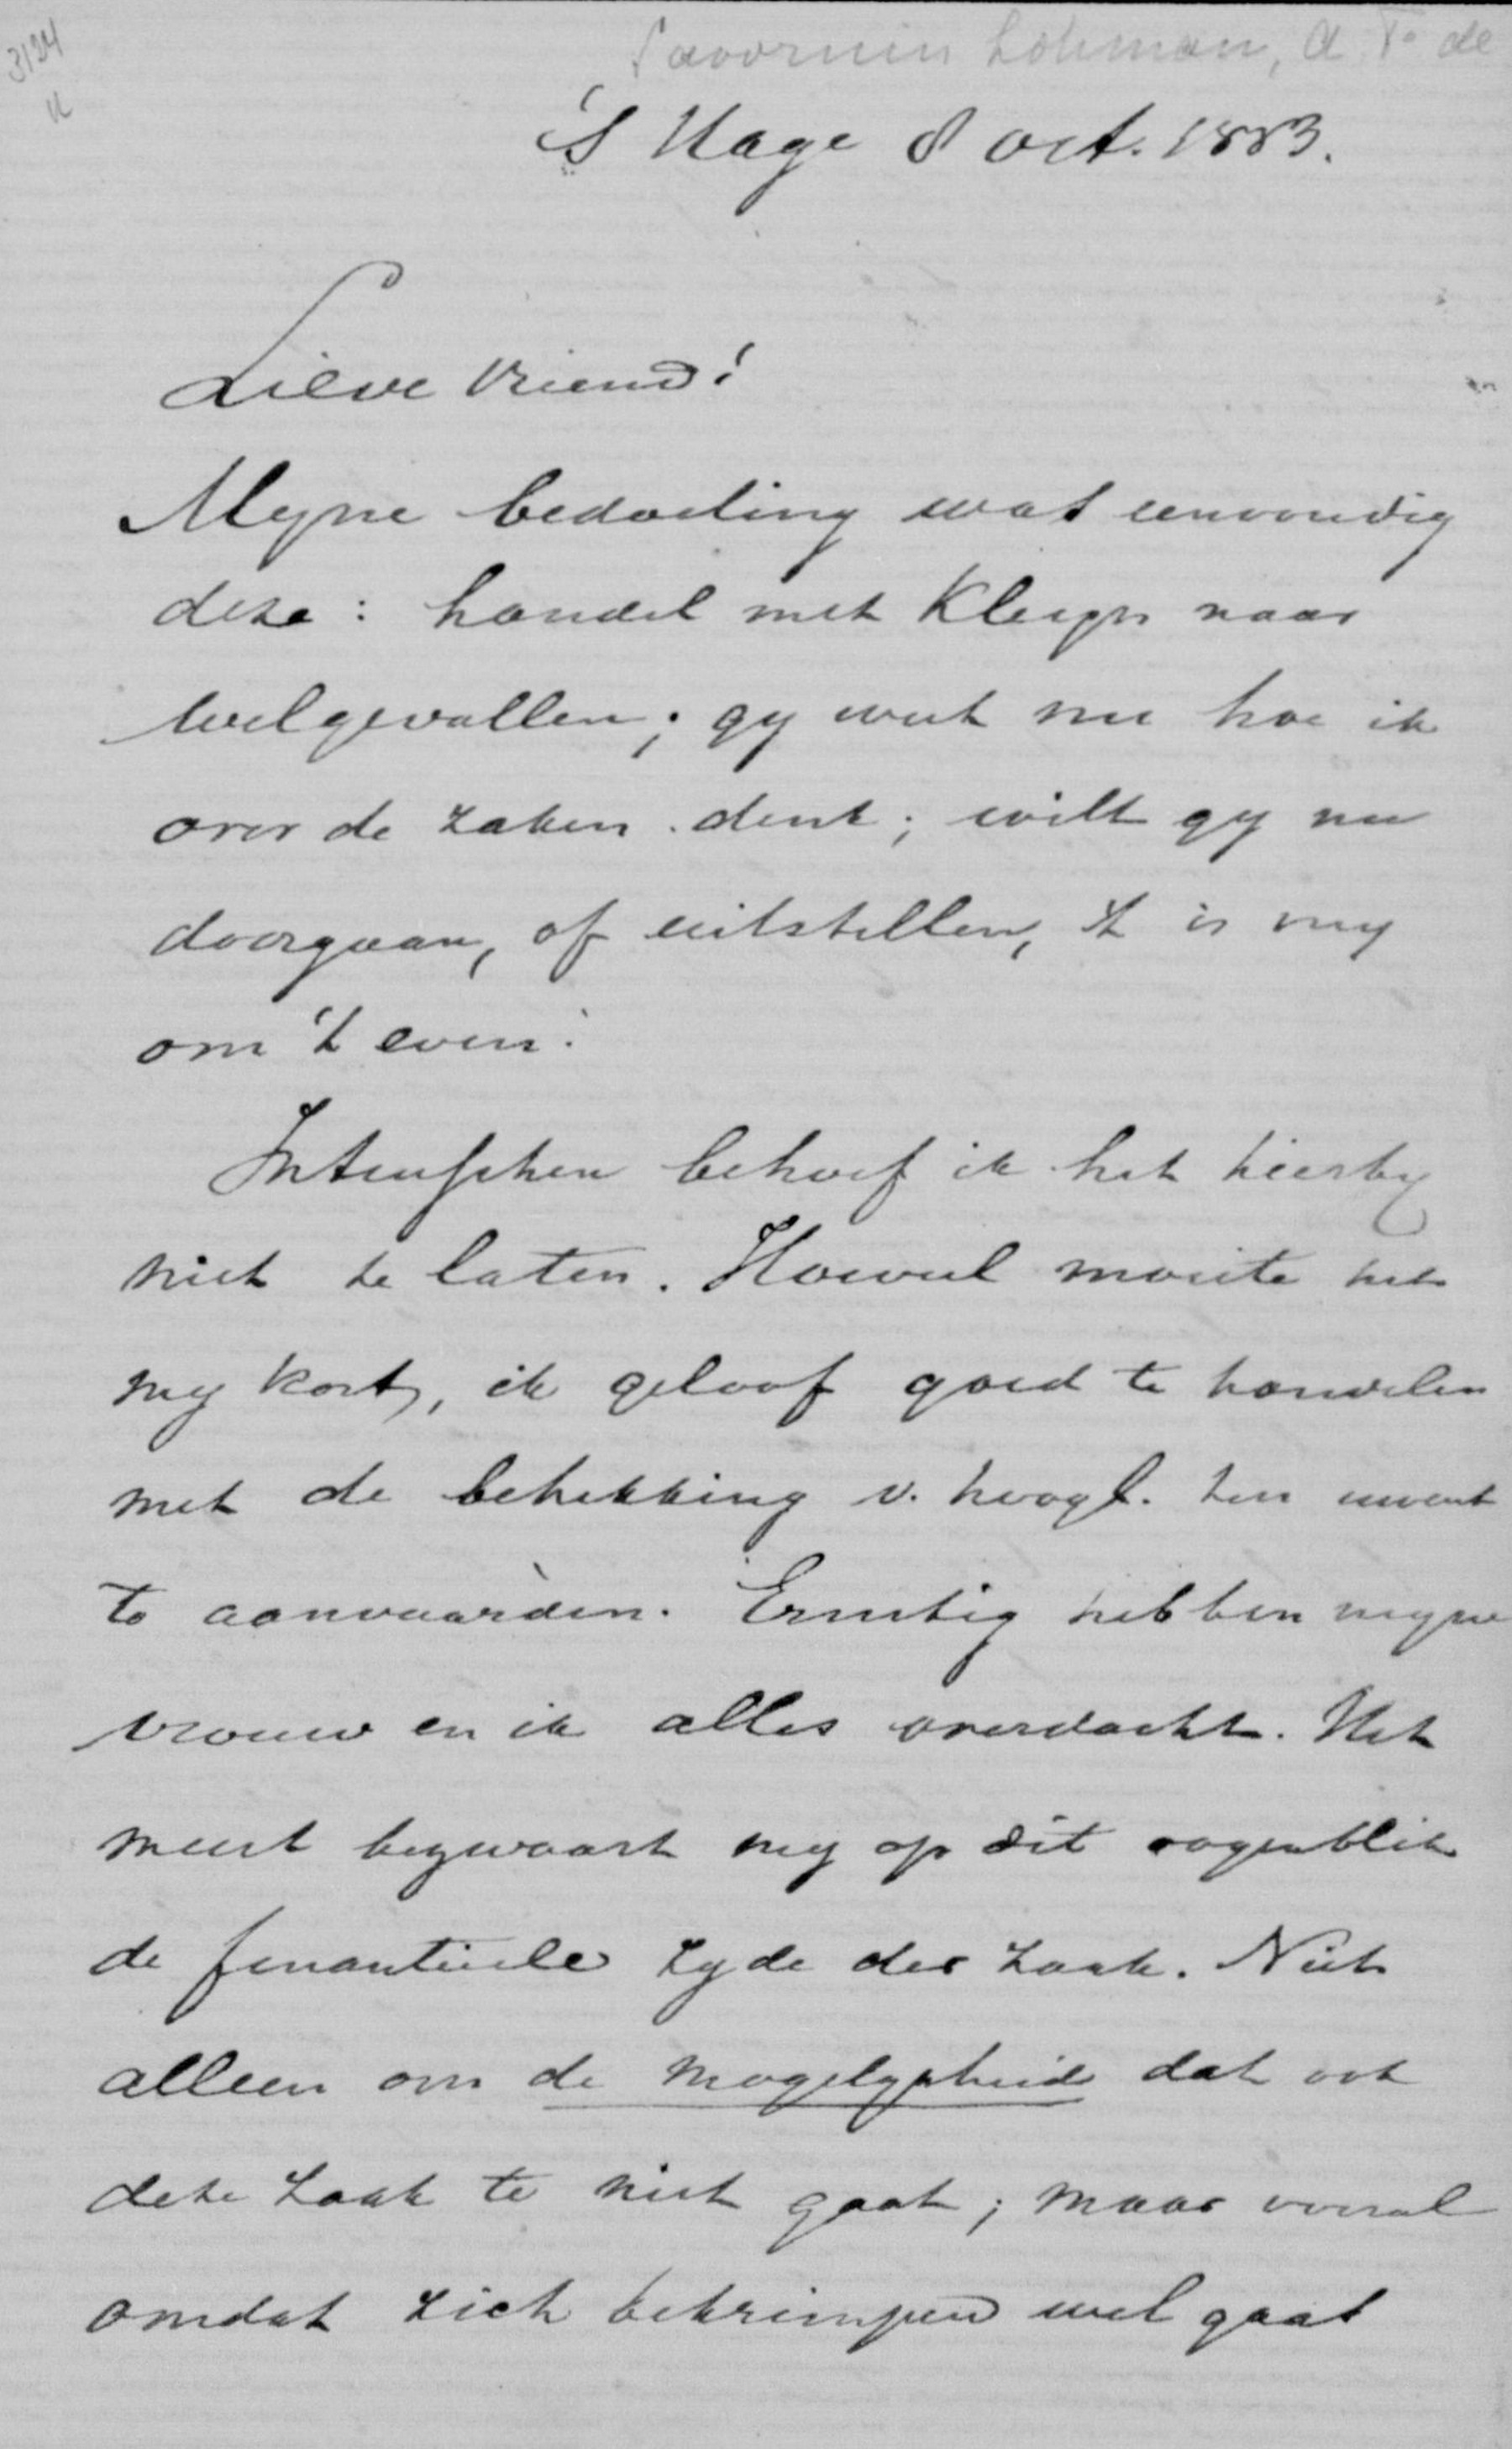 3124
Savornin Lohman, A. F. de
'S Hage 8 oct. 1883.
Lieve Vriend!
Myne bedoeling was eenvoudig
deze: handel met Kleyn naar
welgevallen; gy weet nu hoe ik
over de zaken denk; wilt gy nu
doorgaan, of uitstellen, 't is my
om 't even.
Intusschen behoef ik het hierby
niet te laten. Hoeveel moeite het
my kost, ik geloof goed te handelen
met de betrekking v. hoogl. ten uwent
te aanvaarden. Ernstig hebben myne
vrouw en ik alles overdacht. Het
meest bezwaart my op dit oogenblik
de finantieele zyde der zaak. Niet
alleen om de mogelykheid dat ook
deze zaak te niet gaat; maar vooral
omdat zich bekrimpen wel gaat